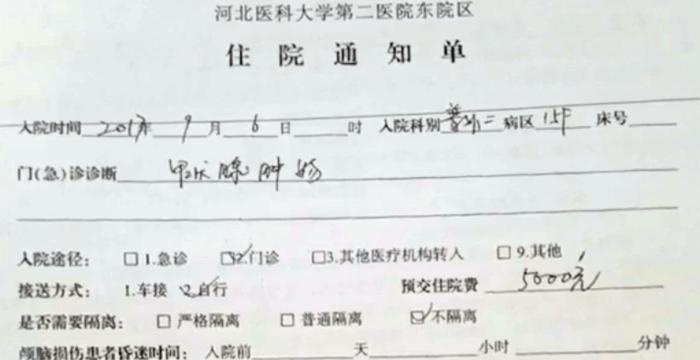 河北医科大学第二医院东院区
住院通知单
入院时间 2017年 9 月 6 日 时 入院科别 普外二 病区 15F 床号
门(急)诊诊断 甲状腺肿物
入院途径: □1.急诊 ☑2.门诊 □3.其他医疗机构转入 □9.其他
接送方式: 1.车接 ✓2.自行 预交住院费 5000元
是否需要隔离: □严格隔离 □普通隔离 ☑不隔离
颅脑损伤患者昏迷时间: 入院前 天 小时 分钟